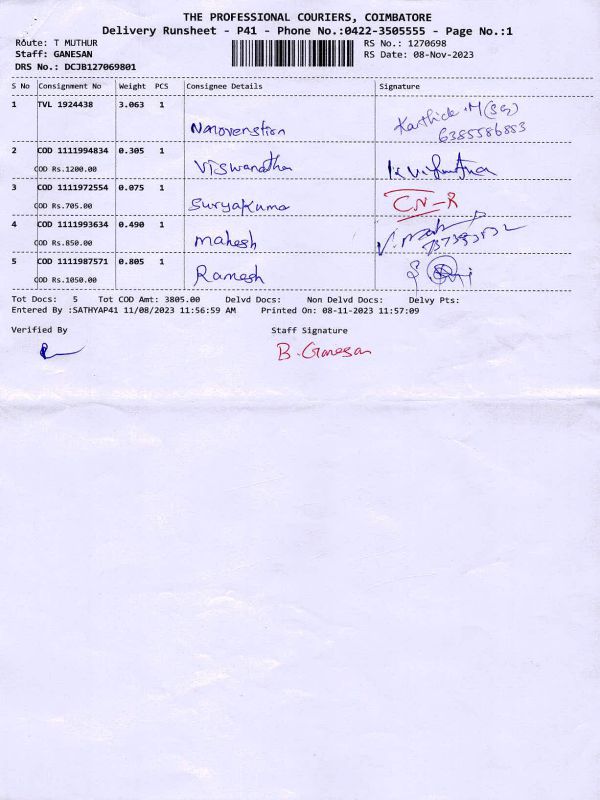 THE PROFESSIONAL COURIERS, COIMBATORE
Delivery Runsheet - P41 - Phone No.:0422-3505555 - Page No.:1
Route: T MUTHUR RS No.: 1270698
Staff: GANESAN RS Date: 08-Nov-2023
DRS No.: DCJB127069801
S No Consignment No Weight PCS Consignee Details Signature
1 TVL 1924438 3.063 1
Karthick.M
6385586853
2 COD 1111994834 0.305 1 Viswanathan
COD Rs.1200.00
3 COD 1111972554 0.075 1 Suryakumar CN-R
COD Rs.705.00
4 COD 1111993634 0.490 1 Mahesh
COD Rs.850.00
5 COD 1111987571 0.805 1 Ramesh
COD Rs.1050.00
Tot Docs: 5 Tot COD Amt: 3805.00 Delvd Docs: Non Delvd Docs: Delvy Pts:
Entered By :SATHYAP41 11/08/2023 11:56:59 AM Printed On: 08-11-2023 11:57:09
Verified By Staff Signature
B. Ganesan